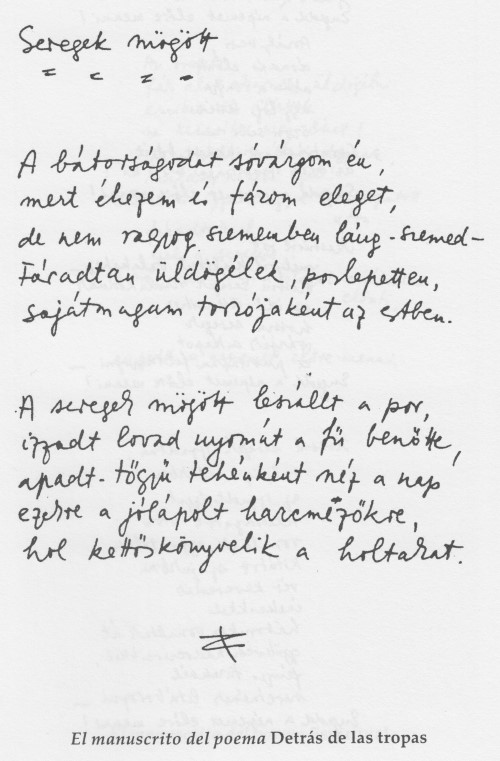 Seregek mögött
A bátorságodat sóvárgom én,
mert éhezem és fázom eleget,
de nem ragyog szememben láng-szemed –
Fáradtan üldögélek, porlepetten,
sajátmagam torzójaként az estben.
A seregek mögött leszállt a por,
izzadt lovad nyomát a fű benőtte,
apadt-tőgyű tehenként néz a nap
ezekre a jólápolt harcmezőkre,
hol kettőskönyvelik a holtakat.
El manuscrito del poema Detrás de las tropas